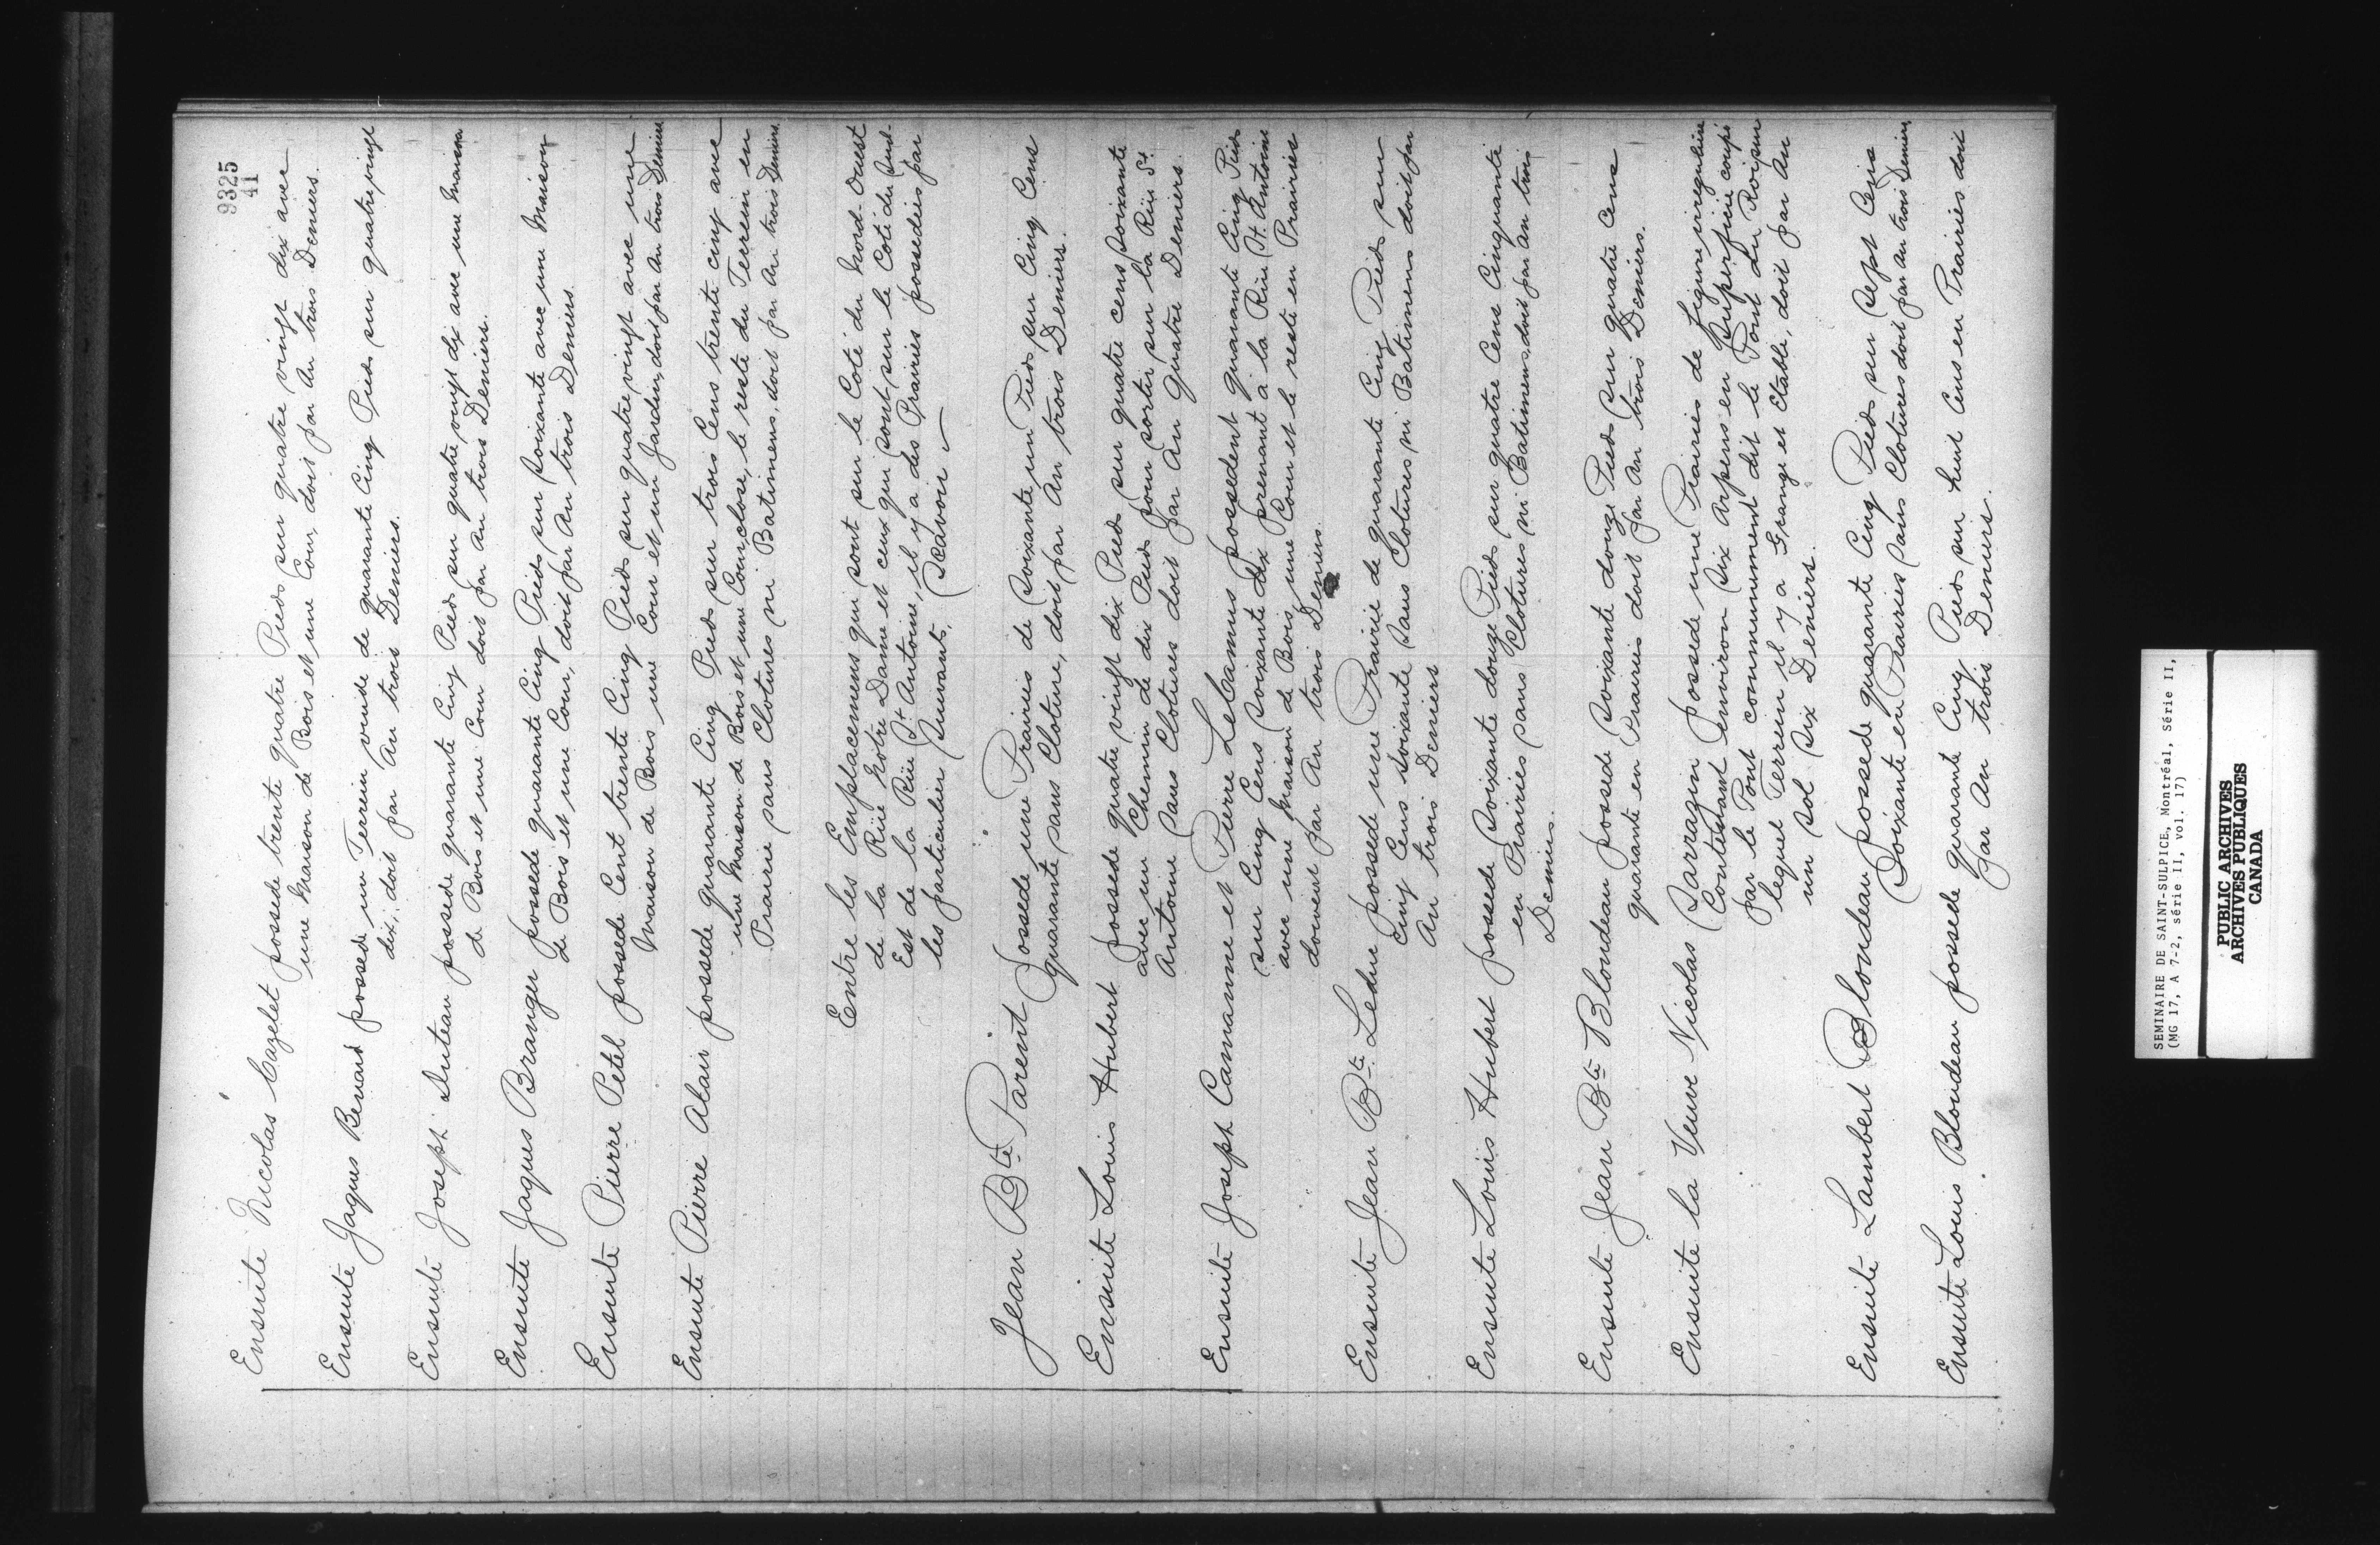 9325
41
Ensuite Nicolas Cazelet possede trente quatre Pieds sur quatre vingt dix avec
une Maison de Bois et une Cour doit par An trois Deniers.
Ensuite Jaques Benard possede un Terrein vuide de quarante Cinq Pieds sur quatre vingt
dix, doit par An trois Deniers.
Ensuite Joseph Duteau possede quarante Cinq Pieds sur quatre vingt dix avec une Maison
de Bois et une Cour doit par An trois Deniers.
Ensuite Jaques Branger possede quarante Cinq Pieds sur Soixante avec une Maison
de Bois et une Cour, doit par An trois Deniers.
Ensuite Pierre Petel possede Cent trente Cinq Pieds sur quatre vingt avec une
Maison de Bois une Cour et un Jardin, doit par An trois Deniers
Ensuite Pierre Alais possede quarante Cinq Pieds sur trois Cens trente cinq avec
une Maison de Bois et une Cour, close, le reste du Terrein en
Prairie sans Clotures ni Batimens, doit par An trois Deniers.
Entre les Emplacemens qui sont sur le Coté du Nord-Ouest
de la Rüe Notre Dame et ceux qui sont sur le Coté du Sud-
Est de la Rüe St Antoine, il y a des Prairies possedées par
les particulier Suivants, Scavoir —
Jean Bte Parent possede une Prairies de Soixante un Pieds sur Cinq Cens
quarante sans Cloture, doit par An trois Deniers.
Ensuite Louis Hubert possede quatre vingt dix Pieds sur quatre cens Soixante
avec un Chemin de dix Pieds pour sortir sur la Rüe St
Antoine Sans Clotures doit par An quatre Deniers.
Ensuite Joseph Camanne et Pierre LeCamus possedent quarante Cinq Pieds
sur Cinq Cens Soixante dix prenant à la Rüe St. Antoine
avec une Maison de Bois, une Cour et le reste en Prairies
doivent par An trois Deniers.
Ensuite Jean Bte Leduc possede une Prairie de quarante Cinq Pieds sur
Cinq Cens Soixante Sans Clotures ni Batimens doit par
An trois Deniers
Ensuite Louis Hubert possede Soixante douze Pieds sur quatre Cens Cinquante
en Prairies sans Clotures ni Batimens, doit par An trois
Deniers.
Ensuite Jean Bte Blondeau possede Soixante douze Pieds sur quatre Cens
quarante en Prairies doit par An trois Deniers.
Ensuite la Veuve Nicolas Sarrazin possede une Prairies de figure irreguliere
Contentant Environ Six Arpens en Superficie coupé
par le Pont communement dit le Pont du Roi, sur
lequel Terrein il y a Grange et Etable, doit par An
un Sol Six Deniers.
Ensuite Lambert Blondeau possede quarante Cinq Pieds sur Sept Cens
Soixante en Prairies Sans Clotures doit par An trois Deniers
Ensuite Louis Blondeau possede quarante Cinq Pieds sur huit Cens en Prairies doit
par An trois Deniers.
SEMINAIRE DE SAINT-SULPICE, Montréal, Série II,
(MG 17, A 7-2, série II, vol. 17)
PUBLIC ARCHIVES
ARCHIVES PUBLIQUES
CANADA